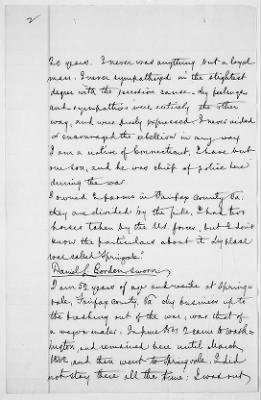 2
20 years. I never was anything but a loyal
man. I never sympathized in the slightest
degree with the secession cause. My feelings
and sympathies were entirely the other
way, and were freely expressed. I never aided
or encouraged the rebellion in any way
I am a native of Connecticut. I have but
one son, and he was chief of police here
during the war.
I owned 2 farms in Fairfax County Va.
they are divided by the pike. I had two
horses taken by the forces, but I don't
know the particulars about it. My place
was called "Springvale."
Daniel L Borden sworn
I am 52 years of age and reside at Spring-
vale, Fairfax County, Va. My business up to
the breaking out of the war, was that of
a wagon maker. In June 1861 I came to Wash-
ington, and remained here until March
1862, and then went to Springvale. I did
not stay there all the time; I was out